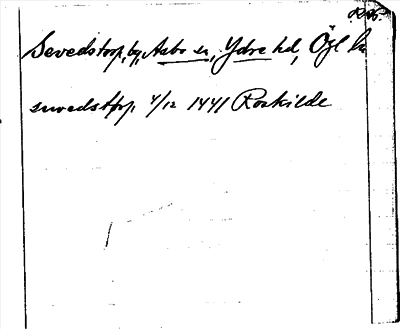 Sevedstorp, by, Asbo sn, Ydre hd, Ögl
swedsttpp 4/12 1441 Roskilde